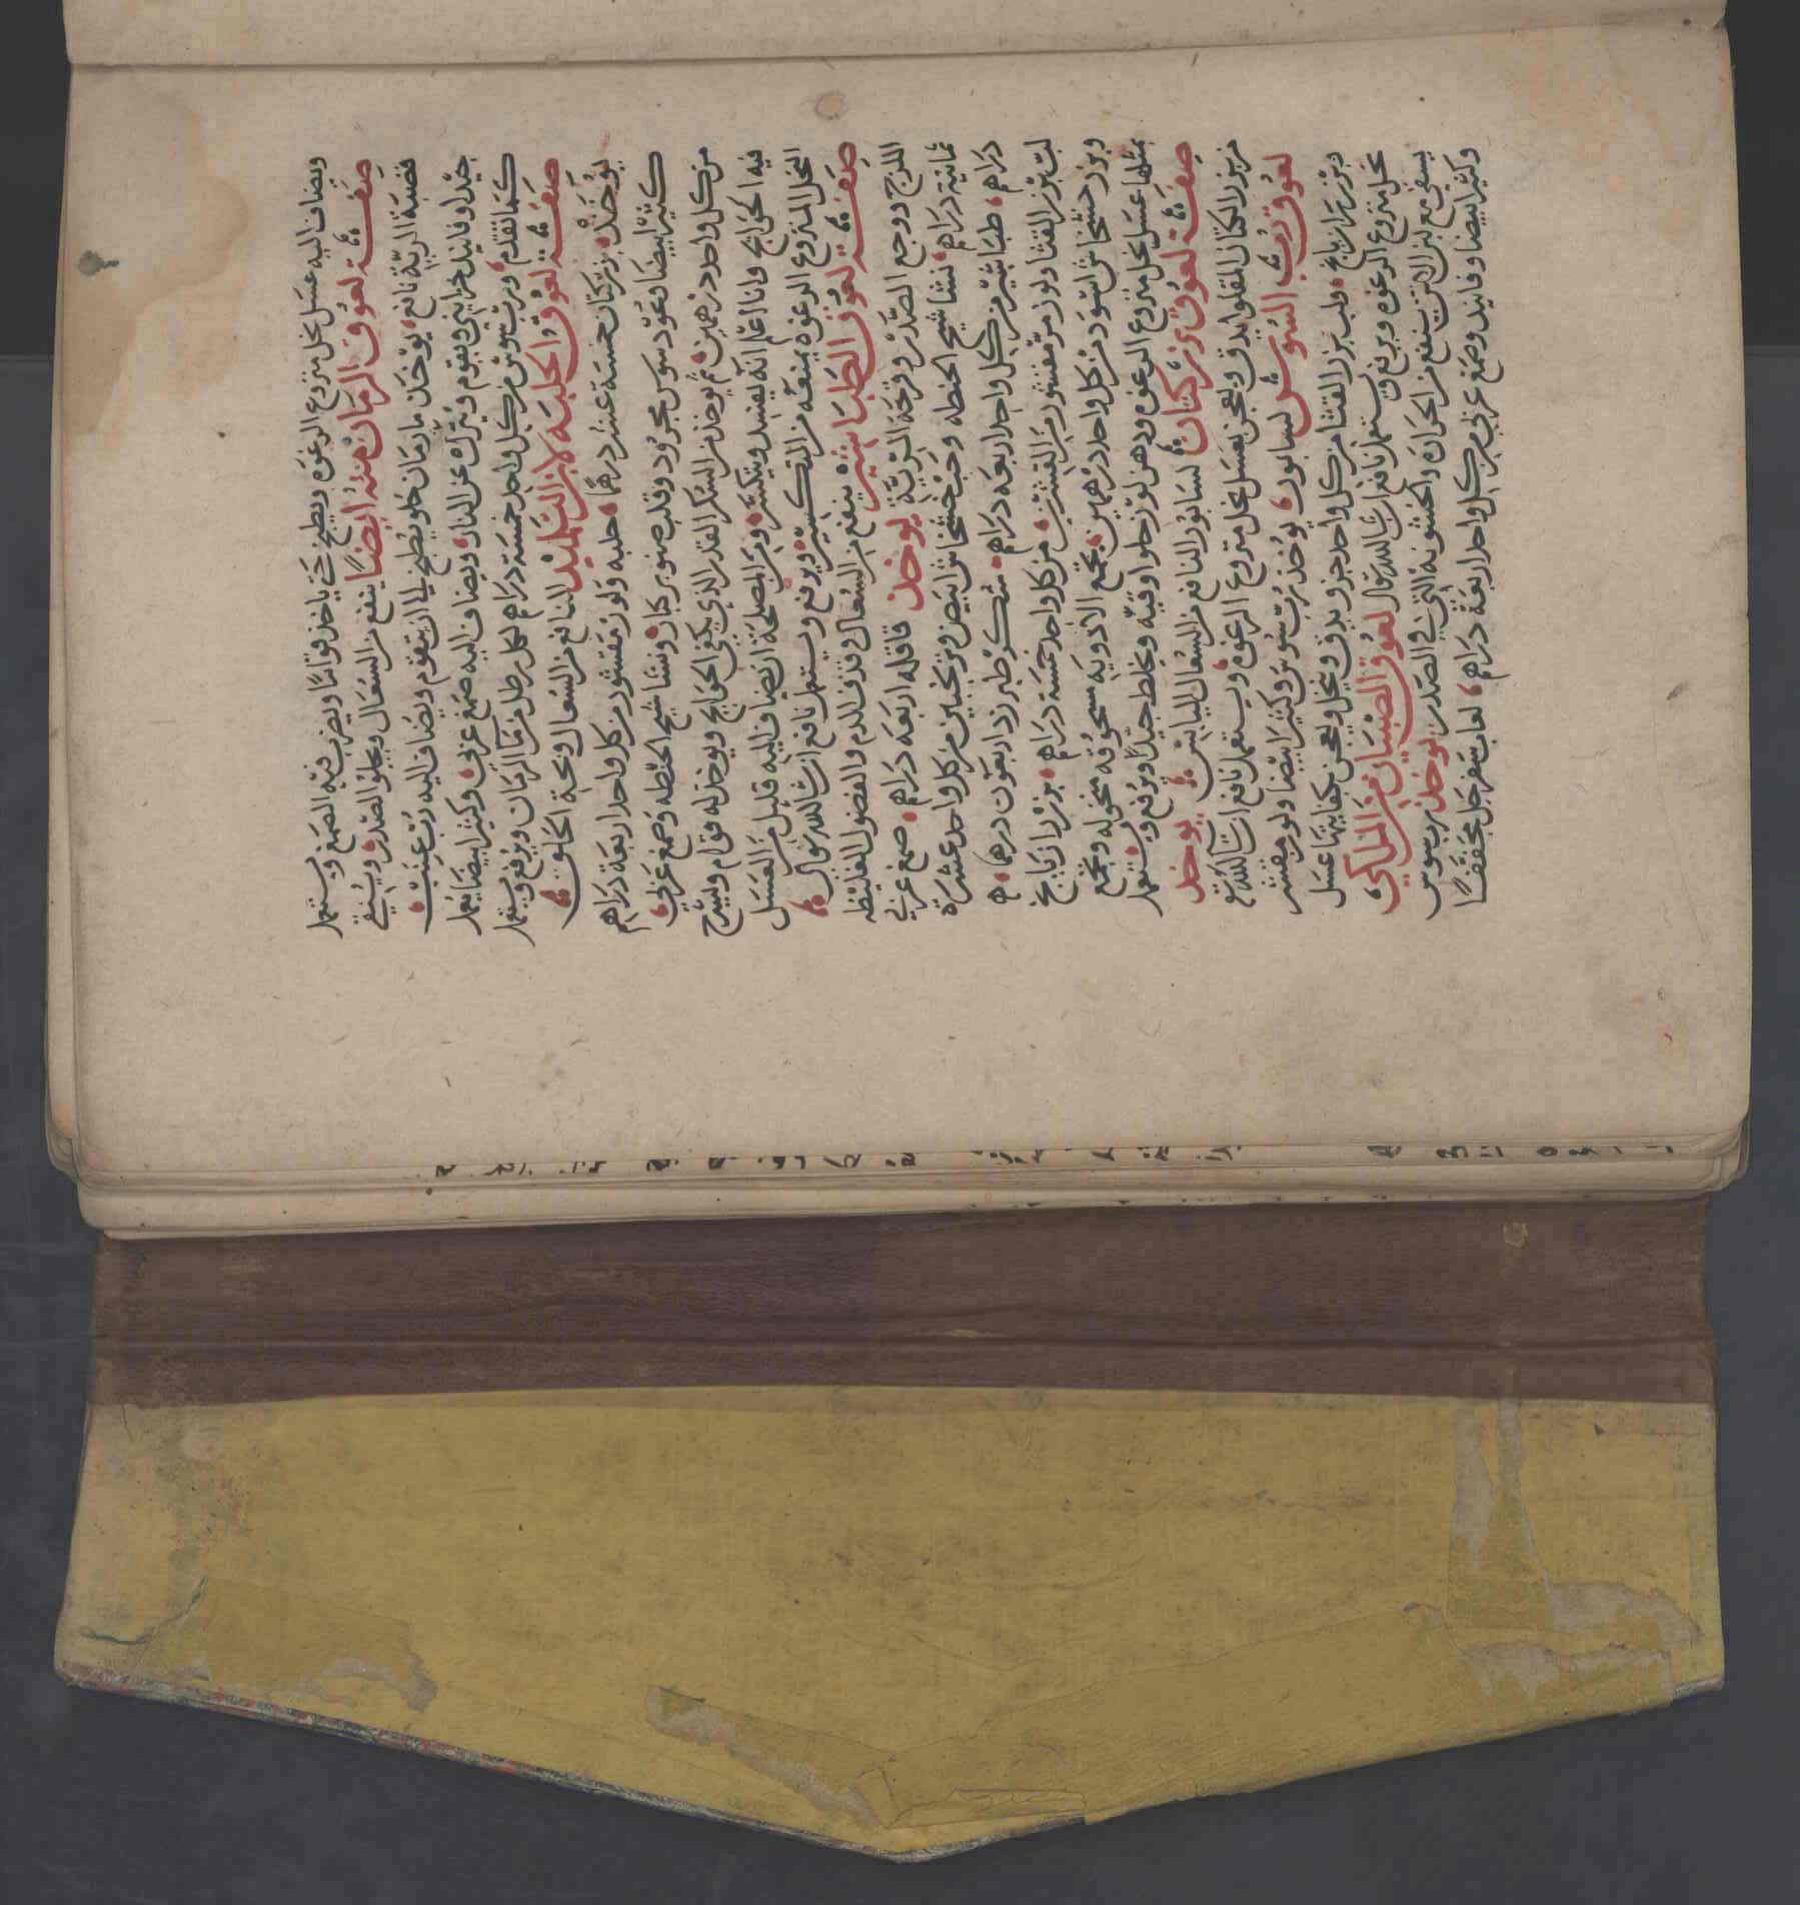 ويضاف اليه عسل نحل منزوع الرغوه ويطبخ حتى ياخذ قواما ويضرب فيه الصمغ ويستعمل
صفة لعوق الرمان منه ايضا ينفع من السعال ويجلو الصدر وينقي
قصبة الرية نافع يوخذ ما رمان حلو يطبخ الى ان يتقوم ويضاف اليه رب عنب
جيد او فانيد خزايني ويقوم وينزل عن النار ويضاف اليه صمغ عربي وكثيرا بيضا يعمل
كما تقدم ورب سوس من كل واحد خمسة دراهم لكل رطل من ما الرمان ويرفع ويستعمل
صفة لعوق الحلبه لابن التلميذ النافع من السعال وبحة الحلق
يوخذ بزر كتان خمسة عشر درهما حلبه ولوز مقشور من كل واحد اربعة دراهم
كثيرا بيضا وعود سوس مجرود وقلب صنوبر كبار ونشا شيح الحنطه وصمغ عربي
من كل واحد درهمين ثم يوخذ من السكر القدر الذي يكفي الحوايج ويوخذ له قوام ويسرح
فيه الحوايج وانا اعلم انه يفسد ويتكسر ومن المصلحة ان يضاف اليه قليل من العسل
النحل المنزوع الرغوه يمنعه من التكسير ويرفع ويستعمل نافع ان شا الله تعالى
صفة لعوق الطباشير ينفع من السعال وقذف الدم والفضول الغليظه
اللزج ووجع الصدر وقرحة الرية يوخذ قاقله اربعه دراهم صمغ عربي
ثمانية دراهم نشا شيح الحنطه وحب خشخاش ابيض وترنجبين من كل واحد عشرة
دراهم طباشير من كل واحد اربعه دراهم سكر طبرزد اربعون درهما
لب بزر القثا ولوز مر مقشور من القشرين من كل واحد خمسة دراهم بزر رازيانج
وبزر خشخاش اسود من كل واحد درهمين تجمع الادويه مسحوقه منخوله وتجمع
بمثلها عسل نحل منزوع الرغوه ودهن لوز حلو اوقيه ويخلط جيدا ويرفع ويستعمل
صفة لعوق بزر كتان لسابور النافع من السعال اليابس يوخذ
من بزر الكتان المقلو يدق ويعجن بعسل نحل منزوع الرغوه ويستعمل نافع ان شا الله تع
لعوق رب السوس لسابور يوخذ رب سوس وكثيرا بيضا ولوز مقشر
وبزر رازيانج ولب بزر القثا من كل واحد جزو يدق وينخل ويعجن بكفايتها عسل
نحل منزوع الرغوه ويرفع ويستعمل نافع ان شا الله تعالى لعوق الصبيان من الملكي
يسقى مع لبن الاتن ينفع من الحراره والخشونه التي في الصدر يوخذ رب سوس
وكثيرا بيضا وفانيد وصمغ عربي من كل واحد اربعة دراهم لعاب سفرجل مجففا